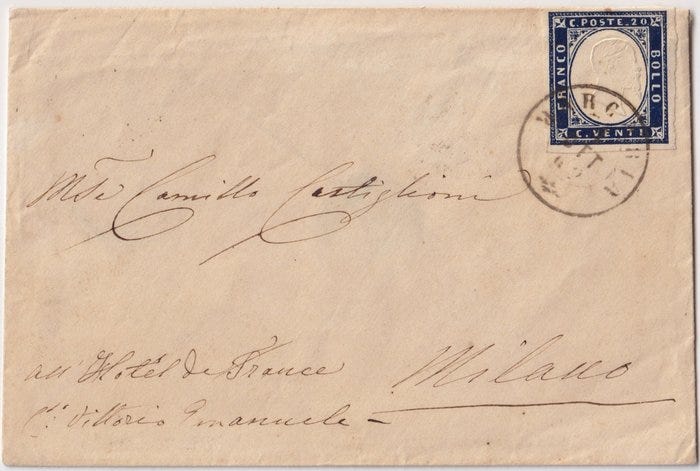 C. POSTE. 20
FRANCO
BOLLO
C. VENTI
Camillo Castiglioni
all' Hôtel de France
Milano
Vittorio Emanuele –